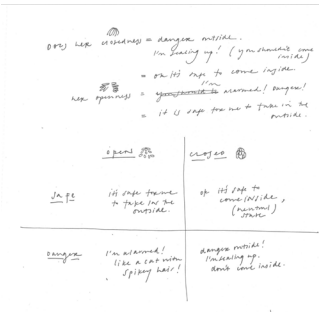 Does her closedness = danger outside.
I'm sealing up! (you shouldn't come inside)
= ok it's safe to come inside
her openness = you should be I'm alarmed! Danger!
= it is safe for me to take in the outside.
open closed
Safe
it's safe for me
to take in the
outside.
ok it's safe to
come inside,
(neutral)
state
Danger
I'm alarmed!
like a cat with
spikey hair!
danger outside!
I'm sealing up.
don't come inside.